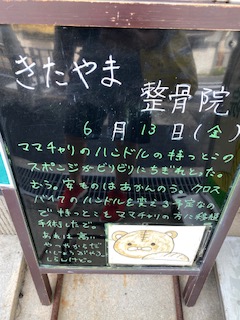 きたやま
整骨院
6月13日(金)
ママチャリのハンドルの持っとこの
スポンジがビリビリにちぎれとった。
むう。安ものはあかんのう。クロス
バイクのハンドルを変える予定なの
で持っとこをママチャリの方に移植
手術したぞ。
あれは高い
やつやからだ
いじょうぶやろ。
しらんけど。